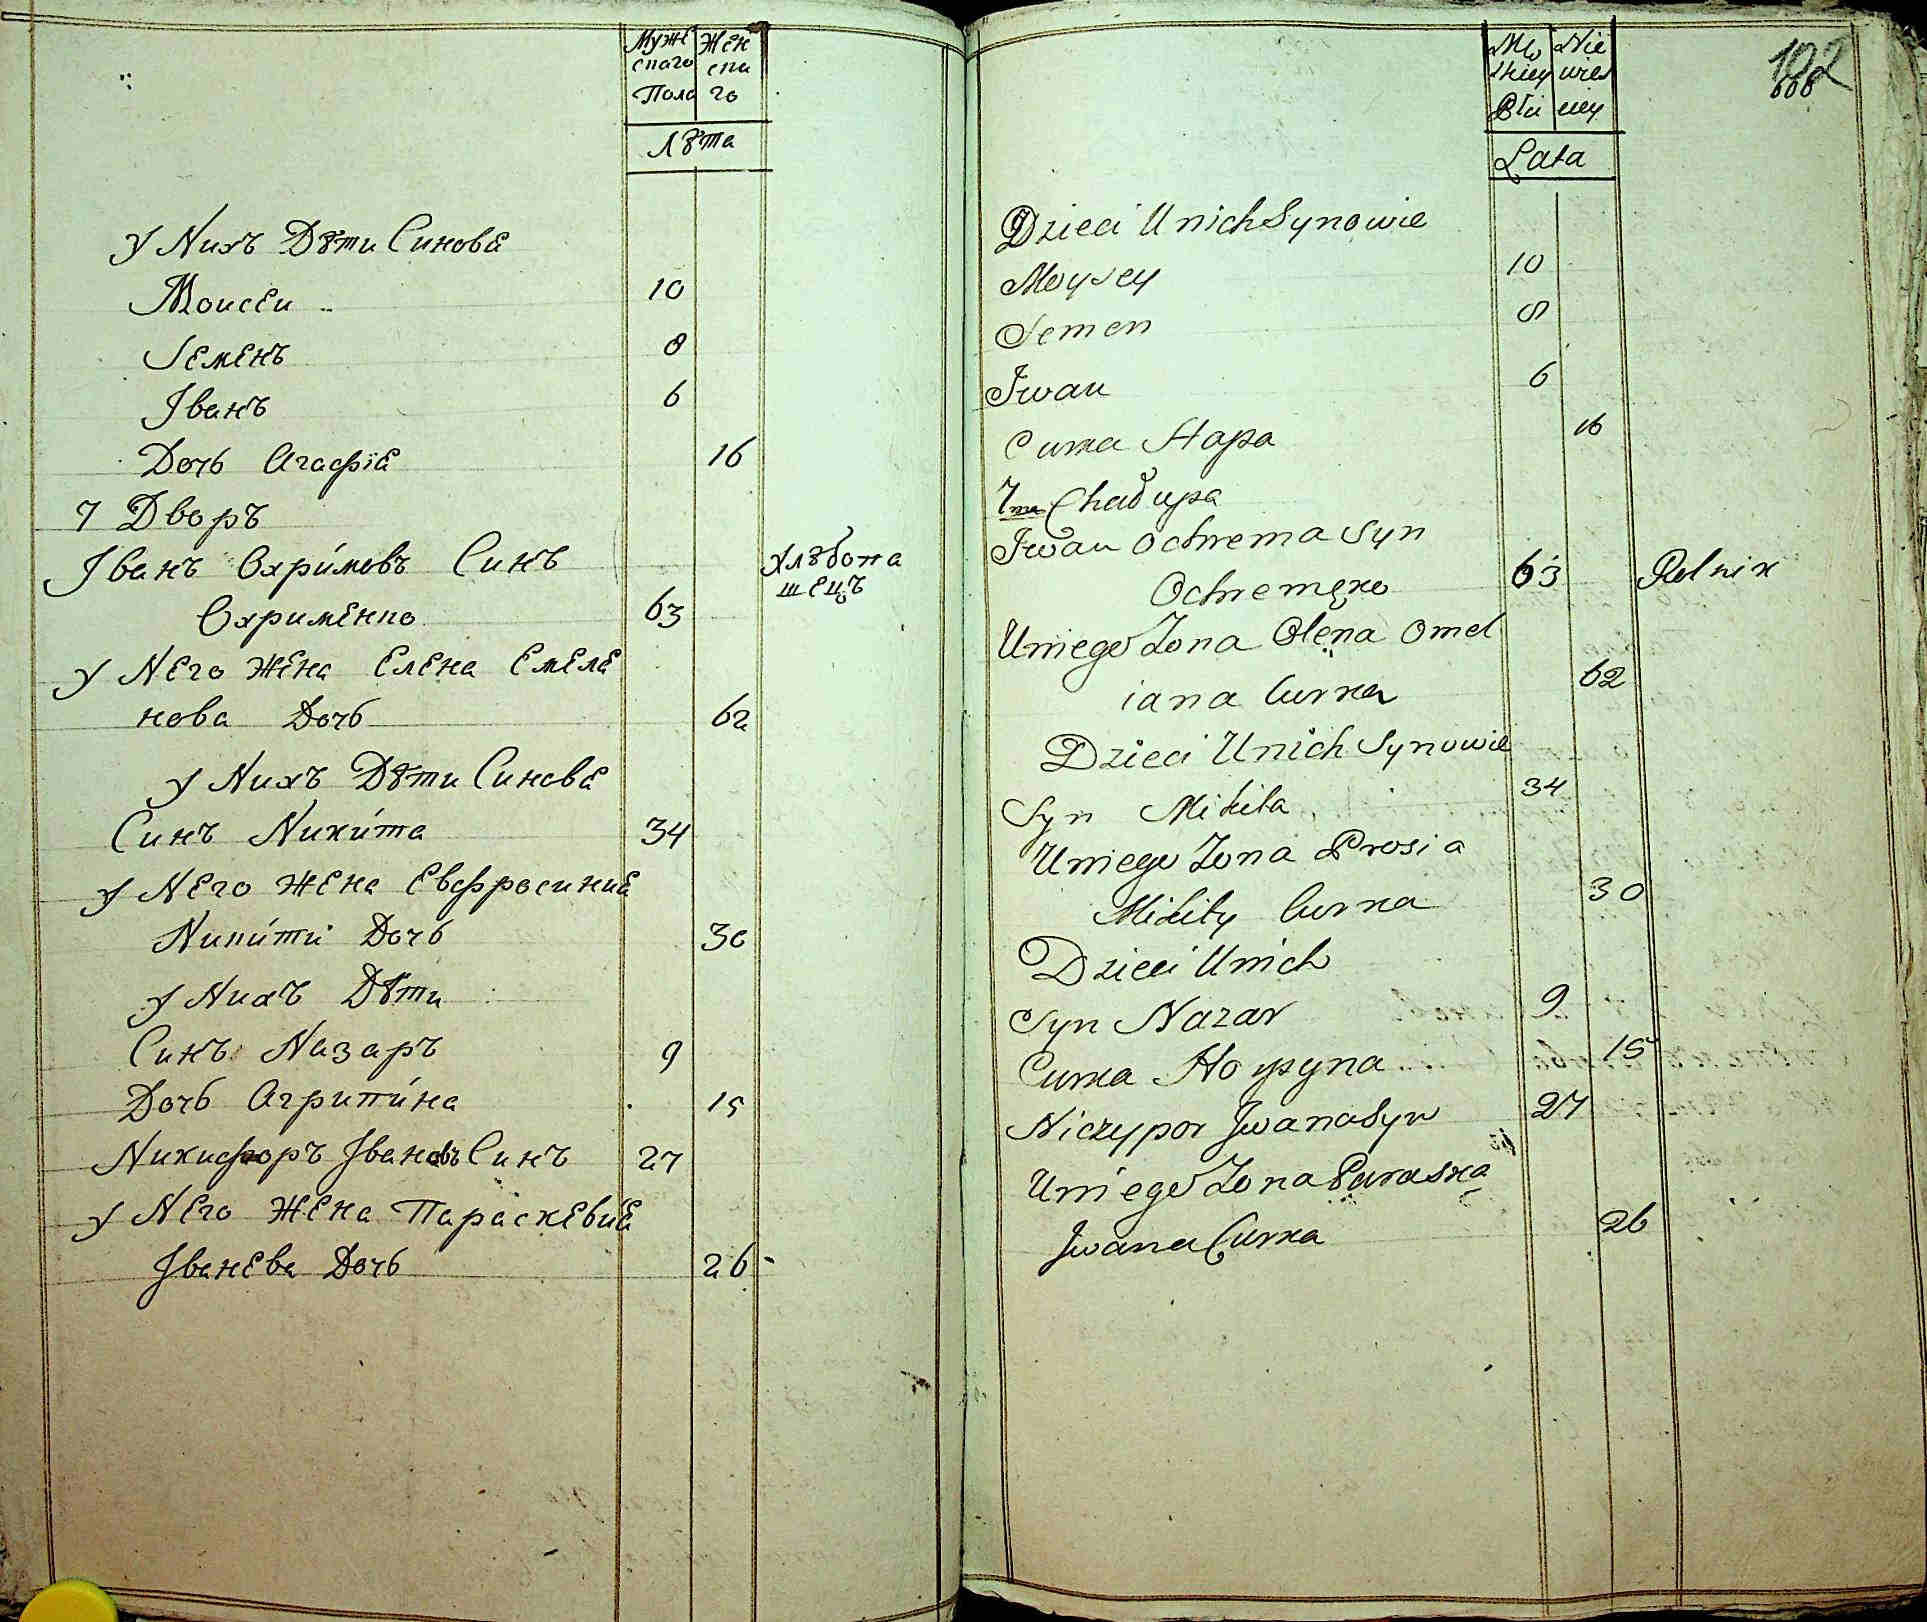 Муже Жен
скаго ска
Пола го
Лѣта
У Нихъ Дѣти Синове
Моисеи 10
Семенъ 8
Іванъ 6
Дочь Агафіе 16
7 Дворъ
Іванъ Охримовъ Синъ Хлѣбопа
шецъ
Охрименко 63
У Него Жена Елена Емеле
нова Дочь 62
У Нихъ Дѣти Синове
Синъ Никита 34
У Него Жена Евфросиние
Никити Дочь 30
У Нихъ Дѣти
Синъ Назаръ 9
Дочь Агрипина 15
Никифоръ Івановъ Синъ 27
У Него Жена Параскевие
Іванева Дочь 26
102
Lata
Dzieci Unich Synowie
Moysey 10
Semen 8
Jwan 6
Curka Hapa 16
7ma Chałupa
Jwan Ochrema Syn
Ochremęko 63 Rolnik
Uniego Zona Olena Omel
iana Curka 62
Dzieci Unich Synowie
Syn Mikita 34
Uniego Zona Prosia
Mikity Curka 30
Dzieci Unich
Syn Nazar 9
Curka Horpyna 15
Niczypor Jwana Syn 27
Uniego Zona Paraska
Jwana Curka 26